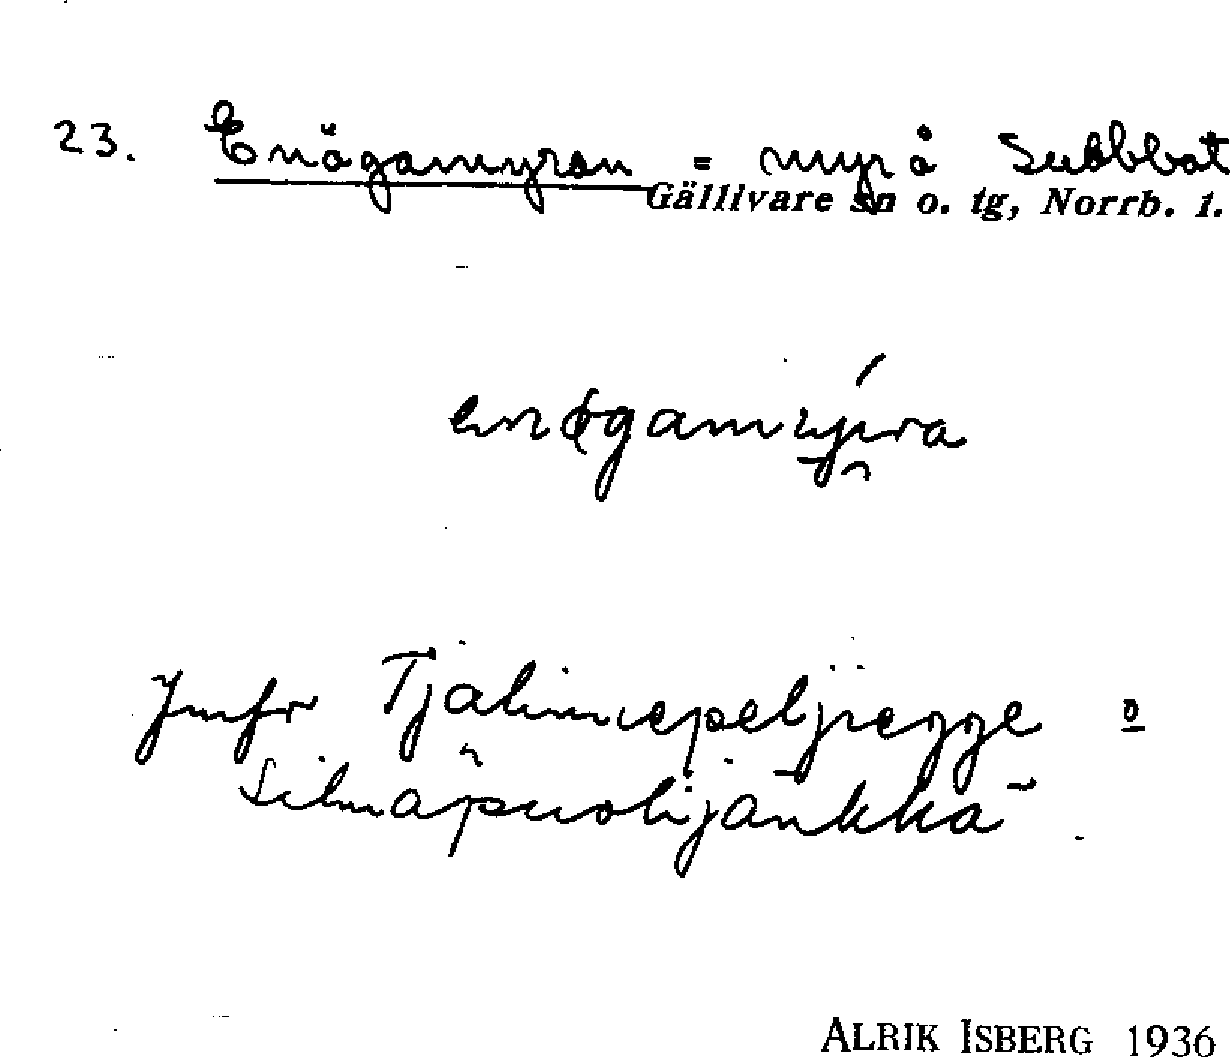 23. Enögamyran = myr å Subbbat
Gällivare sn o. tg, Norrb. l.
Jmfr Tjalmiepeljiegge o
Silmäpuolijänkkä
ALRIK ISBERG 1936